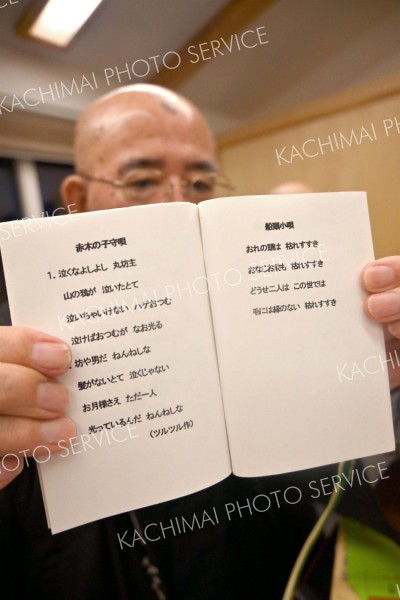 KACHIMAI PHOTO SERVICE
KACHIMAI PHOTO SERVICE
KACHIMAI PHOTO SERVICE
KACHIMAI PHOTO SERVICE
KACHIMAI PHOTO SERVICE
KACHIMAI PHOTO SERVICE
KACHIMAI PHOTO SERVICE
赤木の子守唄
1. 泣くなよしよし 丸坊主
山の鴉が 泣いたとて
泣いちゃいけない ハゲおつむ
泣けばおつむが なお光る
坊や男だ ねんねしな
髪がないとて 泣くじゃない
お月様さえ ただ一人
光っているんだ ねんねしな
(ツルツル作)
船頭小唄
おれの頭は 枯れすすき
おなじお前も 枯れすすき
どうせ二人は この世では
毛には縁のない 枯れすすき